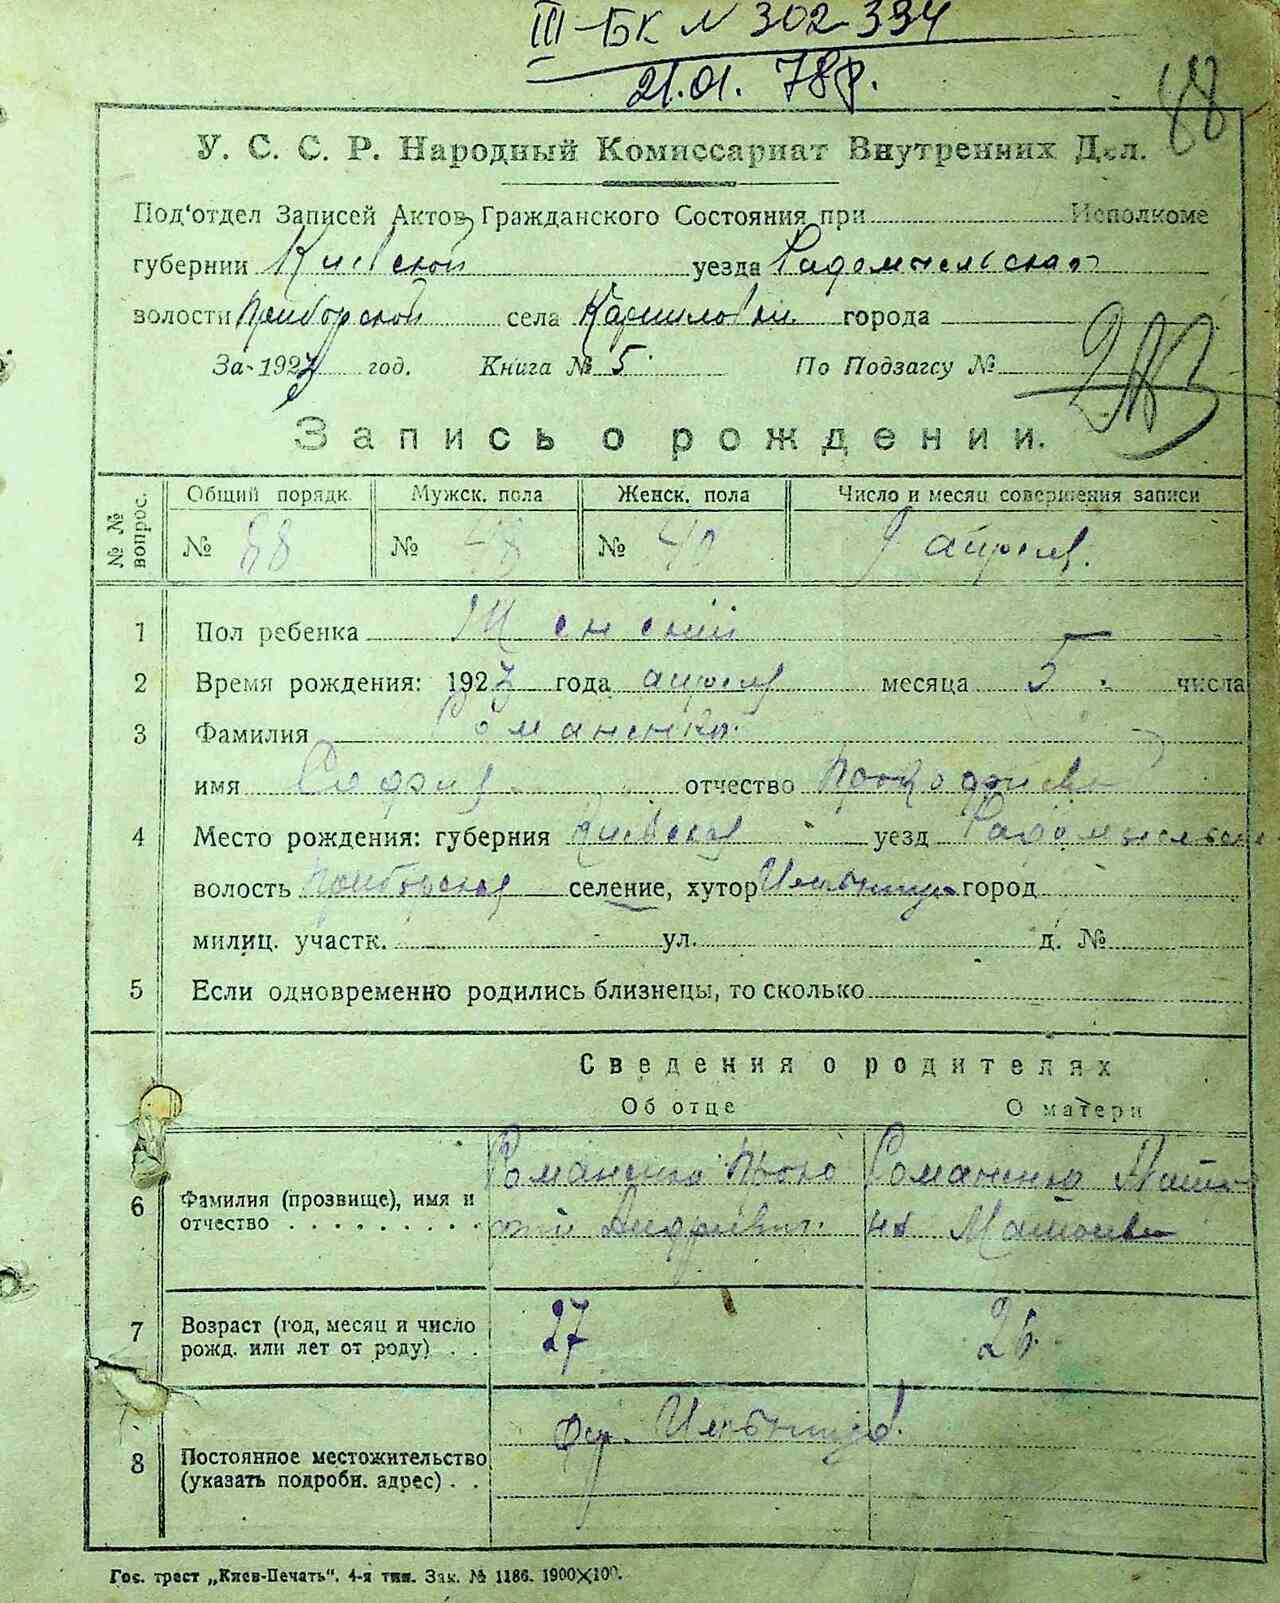 III-БК N 302334
21.01.78р.
88
У. С. С. Р. Народный Комиссариат Внутренних Дел.
Под‘отдел Записей Актов Гражданского Состояния при Исполкоме
губернии Киевской уезда Радомысльская
волости Приборской села города
За 1923 год. Книга № 5. По Подзагсу №
Запись о рождении.
№ № вопрос. Общий порядк. Мужск. пола Женск. пола Число и месяц совершения записи
№ 88 № 48 № 40 9 апреля.
1 Пол ребенка Женский
2 Время рождения: 1923 года апреля месяца 5. числа
3 Фамилия Романенко.
имя София отчество
4 Место рождения: губерния Киевская уезд Радомысльск
волость Приборская селение, хутор город
милиц. участк. ул. д. №
5 Если одновременно родились близнецы, то сколько
Сведения о родителях
Об отце О матери
6 Фамилия (прозвище), имя и Романенко Проко Романенко
отчество
7 Возраст (год, месяц и число 27 26.
рожд. или лет от роду) . .
8 Постоянное местожительство
(указать подробн. адрес) . .
Гос. трест „Киев-Печать“. 4-я тип. Зак. № 1186. 1900×100.